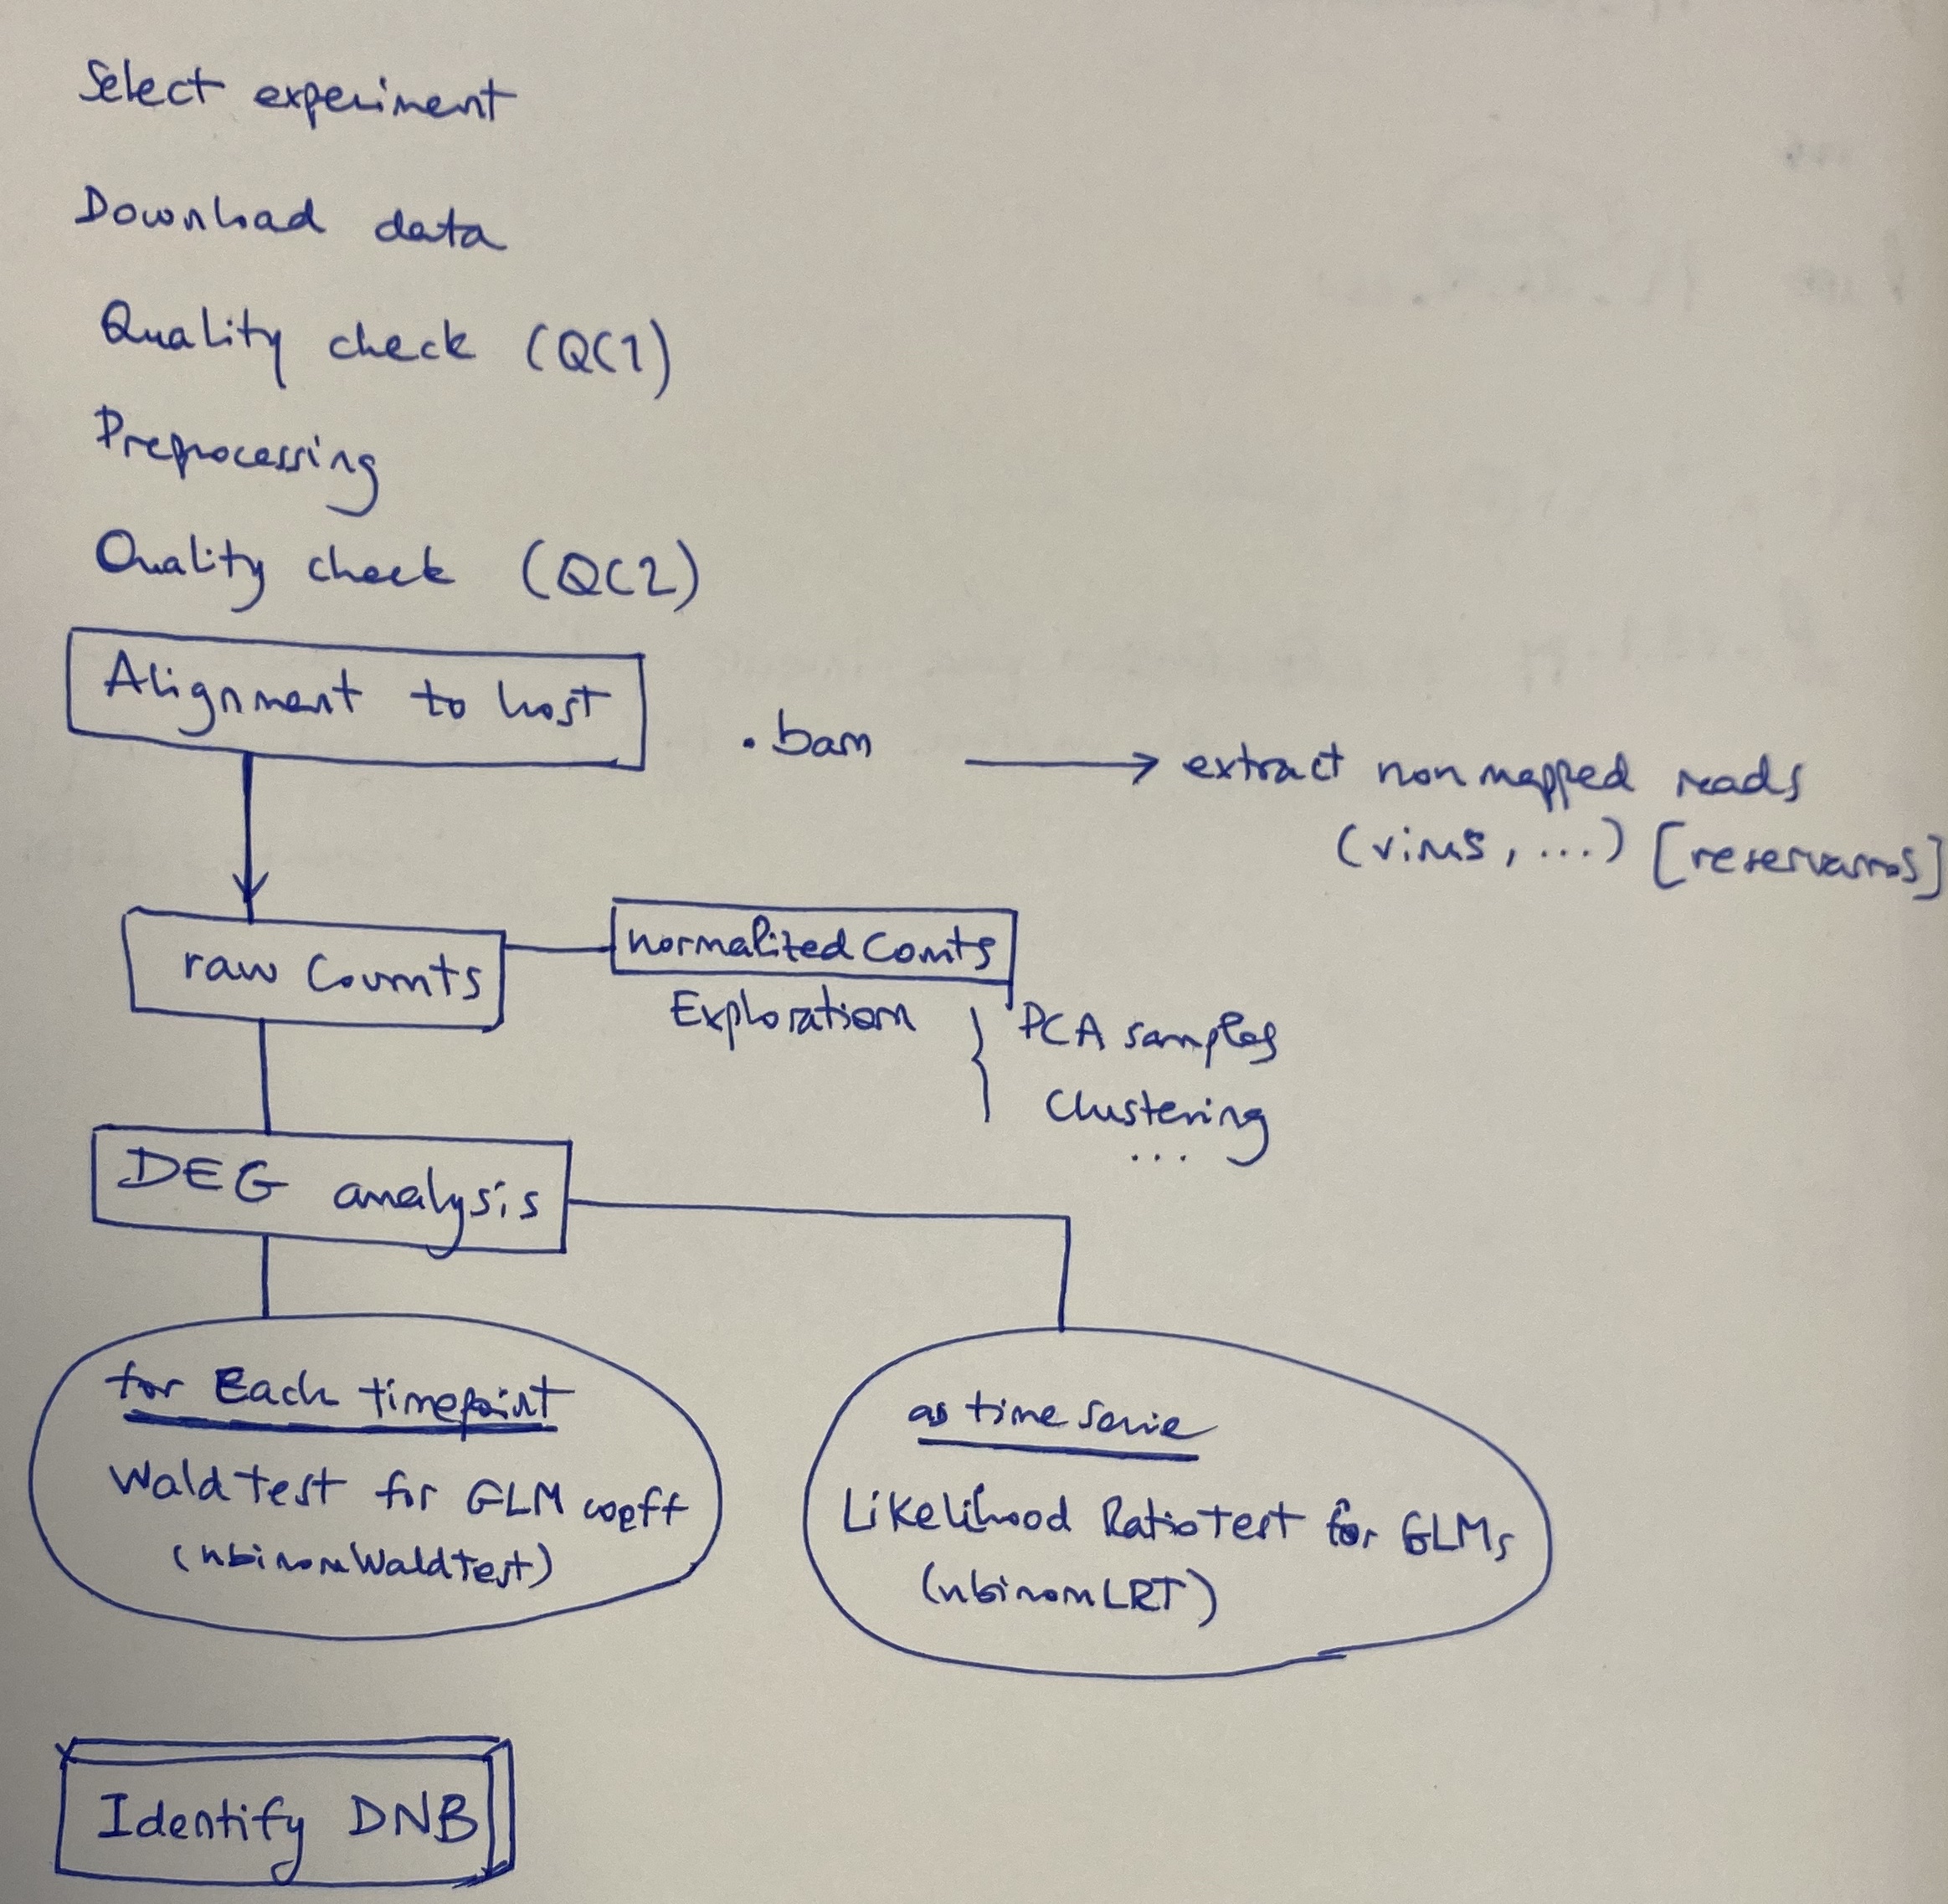 Select experiment
Download data
Quality check (QC1)
Preprocessing
Quality check (QC2)
Alignment to host
.bam → extract non mapped reads
(virus, ...) [reservamos]
raw Counts
normalized Counts
Exploration
PCA samples
Clustering
...
DEG analysis
for Each timepoint
Wald test for GLM coeff
(nbinomWaldTest)
as time serie
Likelihood Ratio Test for GLMs
(nbinomLRT)
Identify DNB